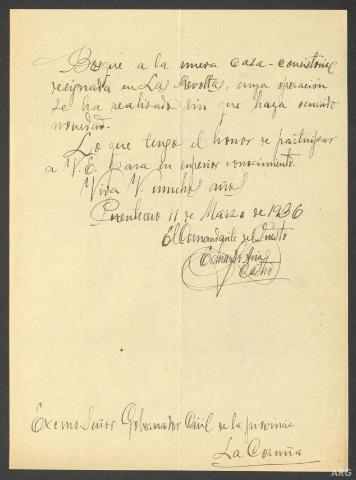 Bosque a la nueva casa-consistorial
resignada en La Revolta, cuya operación
se ha realizado sin que haya ocurrido
novedad.
Lo que tengo el honor de participar
a V.E. para su superior conocimiento.
Viva V. muchos años
11 de Marzo de 1936
El Comandante del Puesto
Castro
Excmo. Señor Gobernador Civil de la provincia
La Coruña
ARG